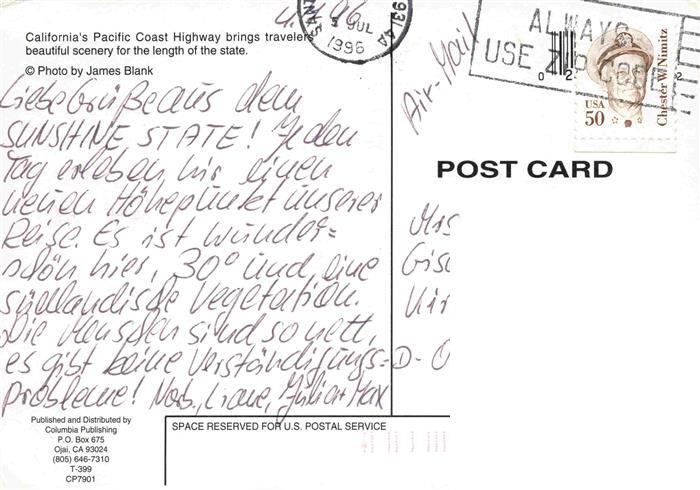 4.7.96
California's Pacific Coast Highway brings travelers
beautiful scenery for the length of the state.
© Photo by James Blank
Liebe Grüße aus dem
SUNSHINE STATE! Jeden
Tag erleben wir einen
neuen Höhepunkt unserer
Reise. Es ist wunder=
schön hier, 30° und eine
südländische Vegetation.
Die Menschen sind so nett,
es gibt keine Verständigungs=
probleme!
Published and Distributed by
Columbia Publishing
P.O. Box 675
Ojai, CA 93024
(805) 646-7310
T-399
CP7901
SPACE RESERVED FOR U.S. POSTAL SERVICE
JUL
1996
931
ALWAYS
USE ZIP CODE
Air-Mail
USA
50
Chester W. Nimitz
POST CARD
D-